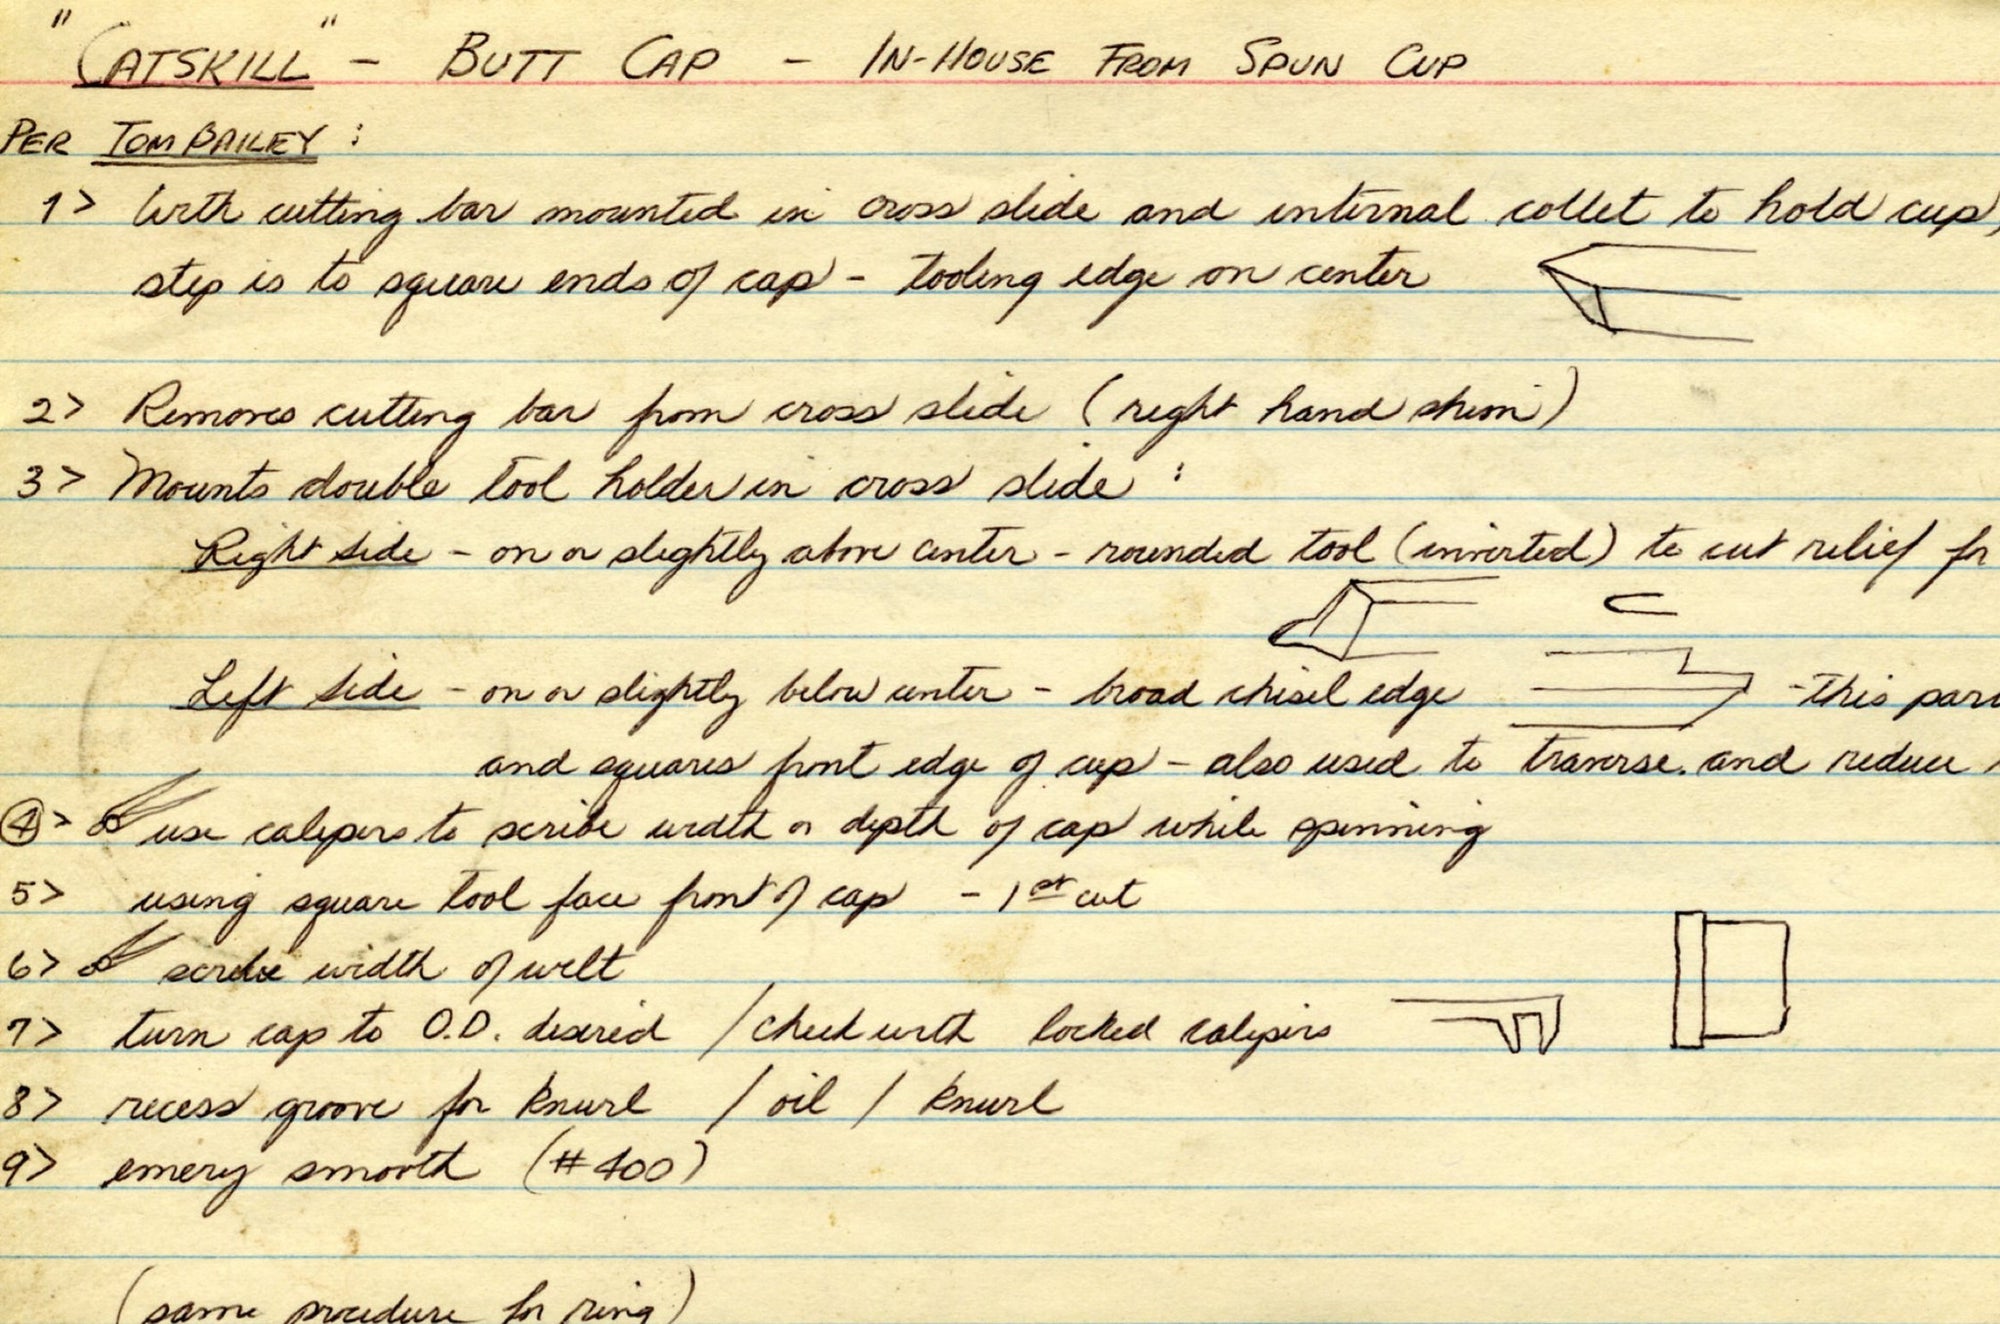 "CATSKILL" - BUTT CAP - IN-HOUSE FROM SPUN CUP
PER TOM BAILEY :
1> With cutting bar mounted in cross slide and internal collet to hold cup,
step is to square ends of cap - tooling edge on center
2> Removes cutting bar from cross slide (right hand shim)
3> Mounts double tool holder in cross slide :
Right side - on or slightly above center - rounded tool (inverted) to cut relief for
Left side - on or slightly below center - broad chisel edge - this par
and squares front edge of cup - also used to traverse and reduce
4> use calipers to scribe width or depth of cap while spinning
5> using square tool face front of cap - 1st cut
6> scribe width of welt
7> turn cap to O.D. desired / check with locked calipers
8> recess groove for knurl / oil / knurl
9> emery smooth (#400)
(same procedure for ring)